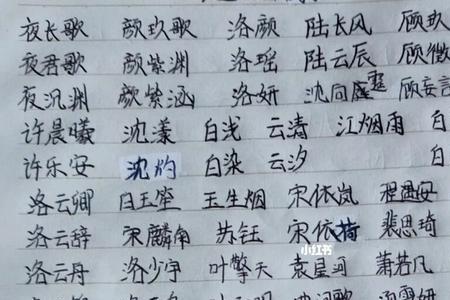 夜长歌 颜玖歌 洛颜 陆长风 顾玖
夜君歌 颜紫渊 洛瑶 陆云辰 顾微
夜沉渊 颜紫涵 洛妍 沈同庭 霆 顾妄言
许晨曦 沈漾 白浅 云清 江烟雨 白
许乐安 沈灼 白染 云汐 白
洛云卿 白玉笙 玉生烟 宋依岚 程遇安
洛云辞 宋麟角 苏钰 宋依椅 裴思琦
小红书
洛云丹 洛少宇 叶擎天 袁星河 萧若凡